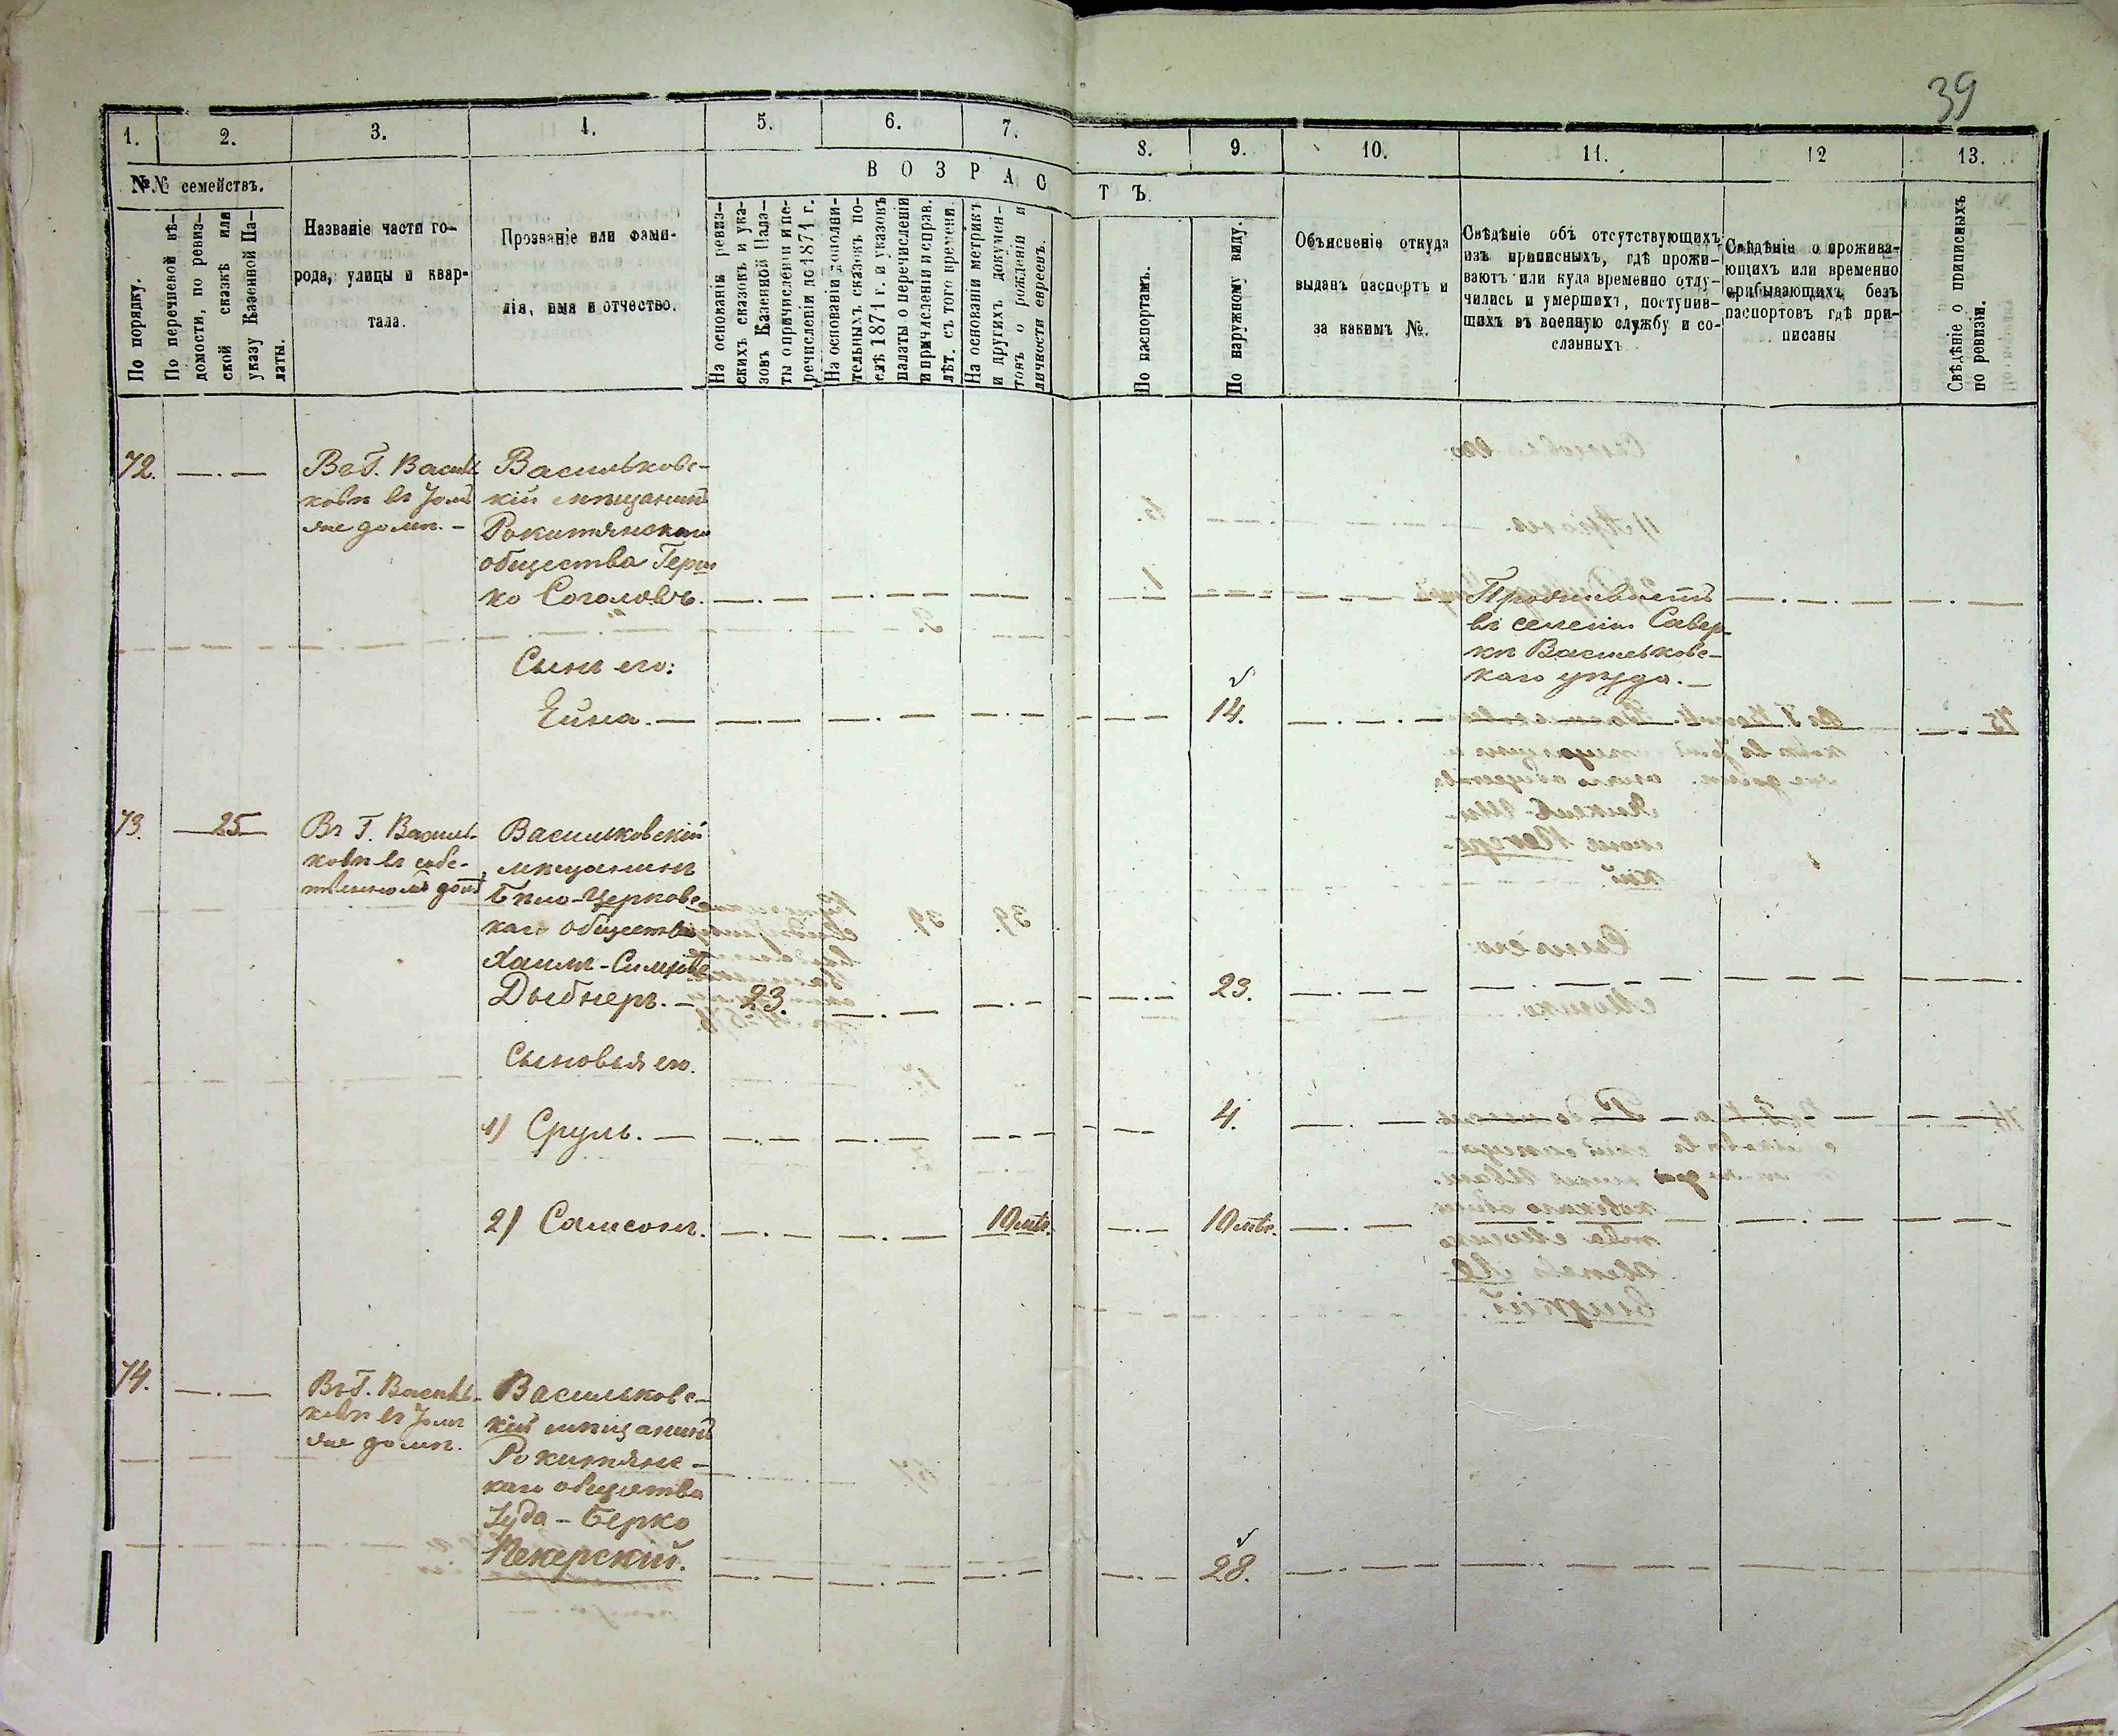 39
1.
2.
3.
4.
5.
6.
7.
8.
9.
10.
11.
12
13.
№№ семействъ.
ВОЗРАСТЪ.
По порядку.
По перечневой вѣ-
домости, по ревиз-
ской сказкѣ или
указу Казенной Па-
латы.
Названіе части го-
рода, улицы и квар-
тала.
Прозваніе или фами-
лія, имя и отчество.
На основаніи ревиз-
скихъ сказокъ и ука-
зовъ Казенной Пала-
ты о причисленіи и пе-
речисленіи до 1871 г.
На основаніи дополни-
тельныхъ сказокъ по-
слѣ 1871 г. и указовъ
палаты о перечисленіи
и причисленіи и справ.
лѣт. съ того времени.
На основаніи метрикъ
и другихъ докумен-
товъ о рожденіи и
личности евреевъ.
По паспортамъ.
По наружному виду.
Объясненіе откуда
выданъ паспортъ и
за какимъ №.
Свѣдѣніе объ отсутствующихъ
изъ приписныхъ, гдѣ прожи-
ваютъ или куда временно отлу-
чились и умершихъ, поступив-
шихъ въ военную службу и со-
сланныхъ
Свѣдѣніе о прожива-
ющихъ или временно
прибывающихъ безъ
паспортовъ гдѣ при-
писаны
Свѣдѣніе о приписныхъ
по ревизіи.
72. —.—
Въ Г. Василь-
ковѣ въ томъ
же домѣ. —
Васильковс-
кій мѣщанинъ
Рокитянскаго
общества Герш
ко Соголовъ.
Проживаетъ
въ селеніи Савер-
кѣ Васильковс-
каго уѣзда. —
Сынъ его:
Ейна. —
14.
73.
25
Въ Г. Василь-
ковѣ въ собс-
твенномъ домѣ
Васильковскій
мѣщанинъ
Бѣло-Церковс
каго общества
Хаимъ-
Дыбнеръ. —
23.
23.
Сыновья его.
1) Сруль. —
4.
2) Самсонъ.
10 мѣс.
10 мѣс.
74. —.—
Въ Г. Василь-
ковѣ въ томъ
же домѣ.
Васильковс-
кій мѣщанинъ
Рокитянс-
каго общества
Іуда-Берко
Пекерскій.
28.